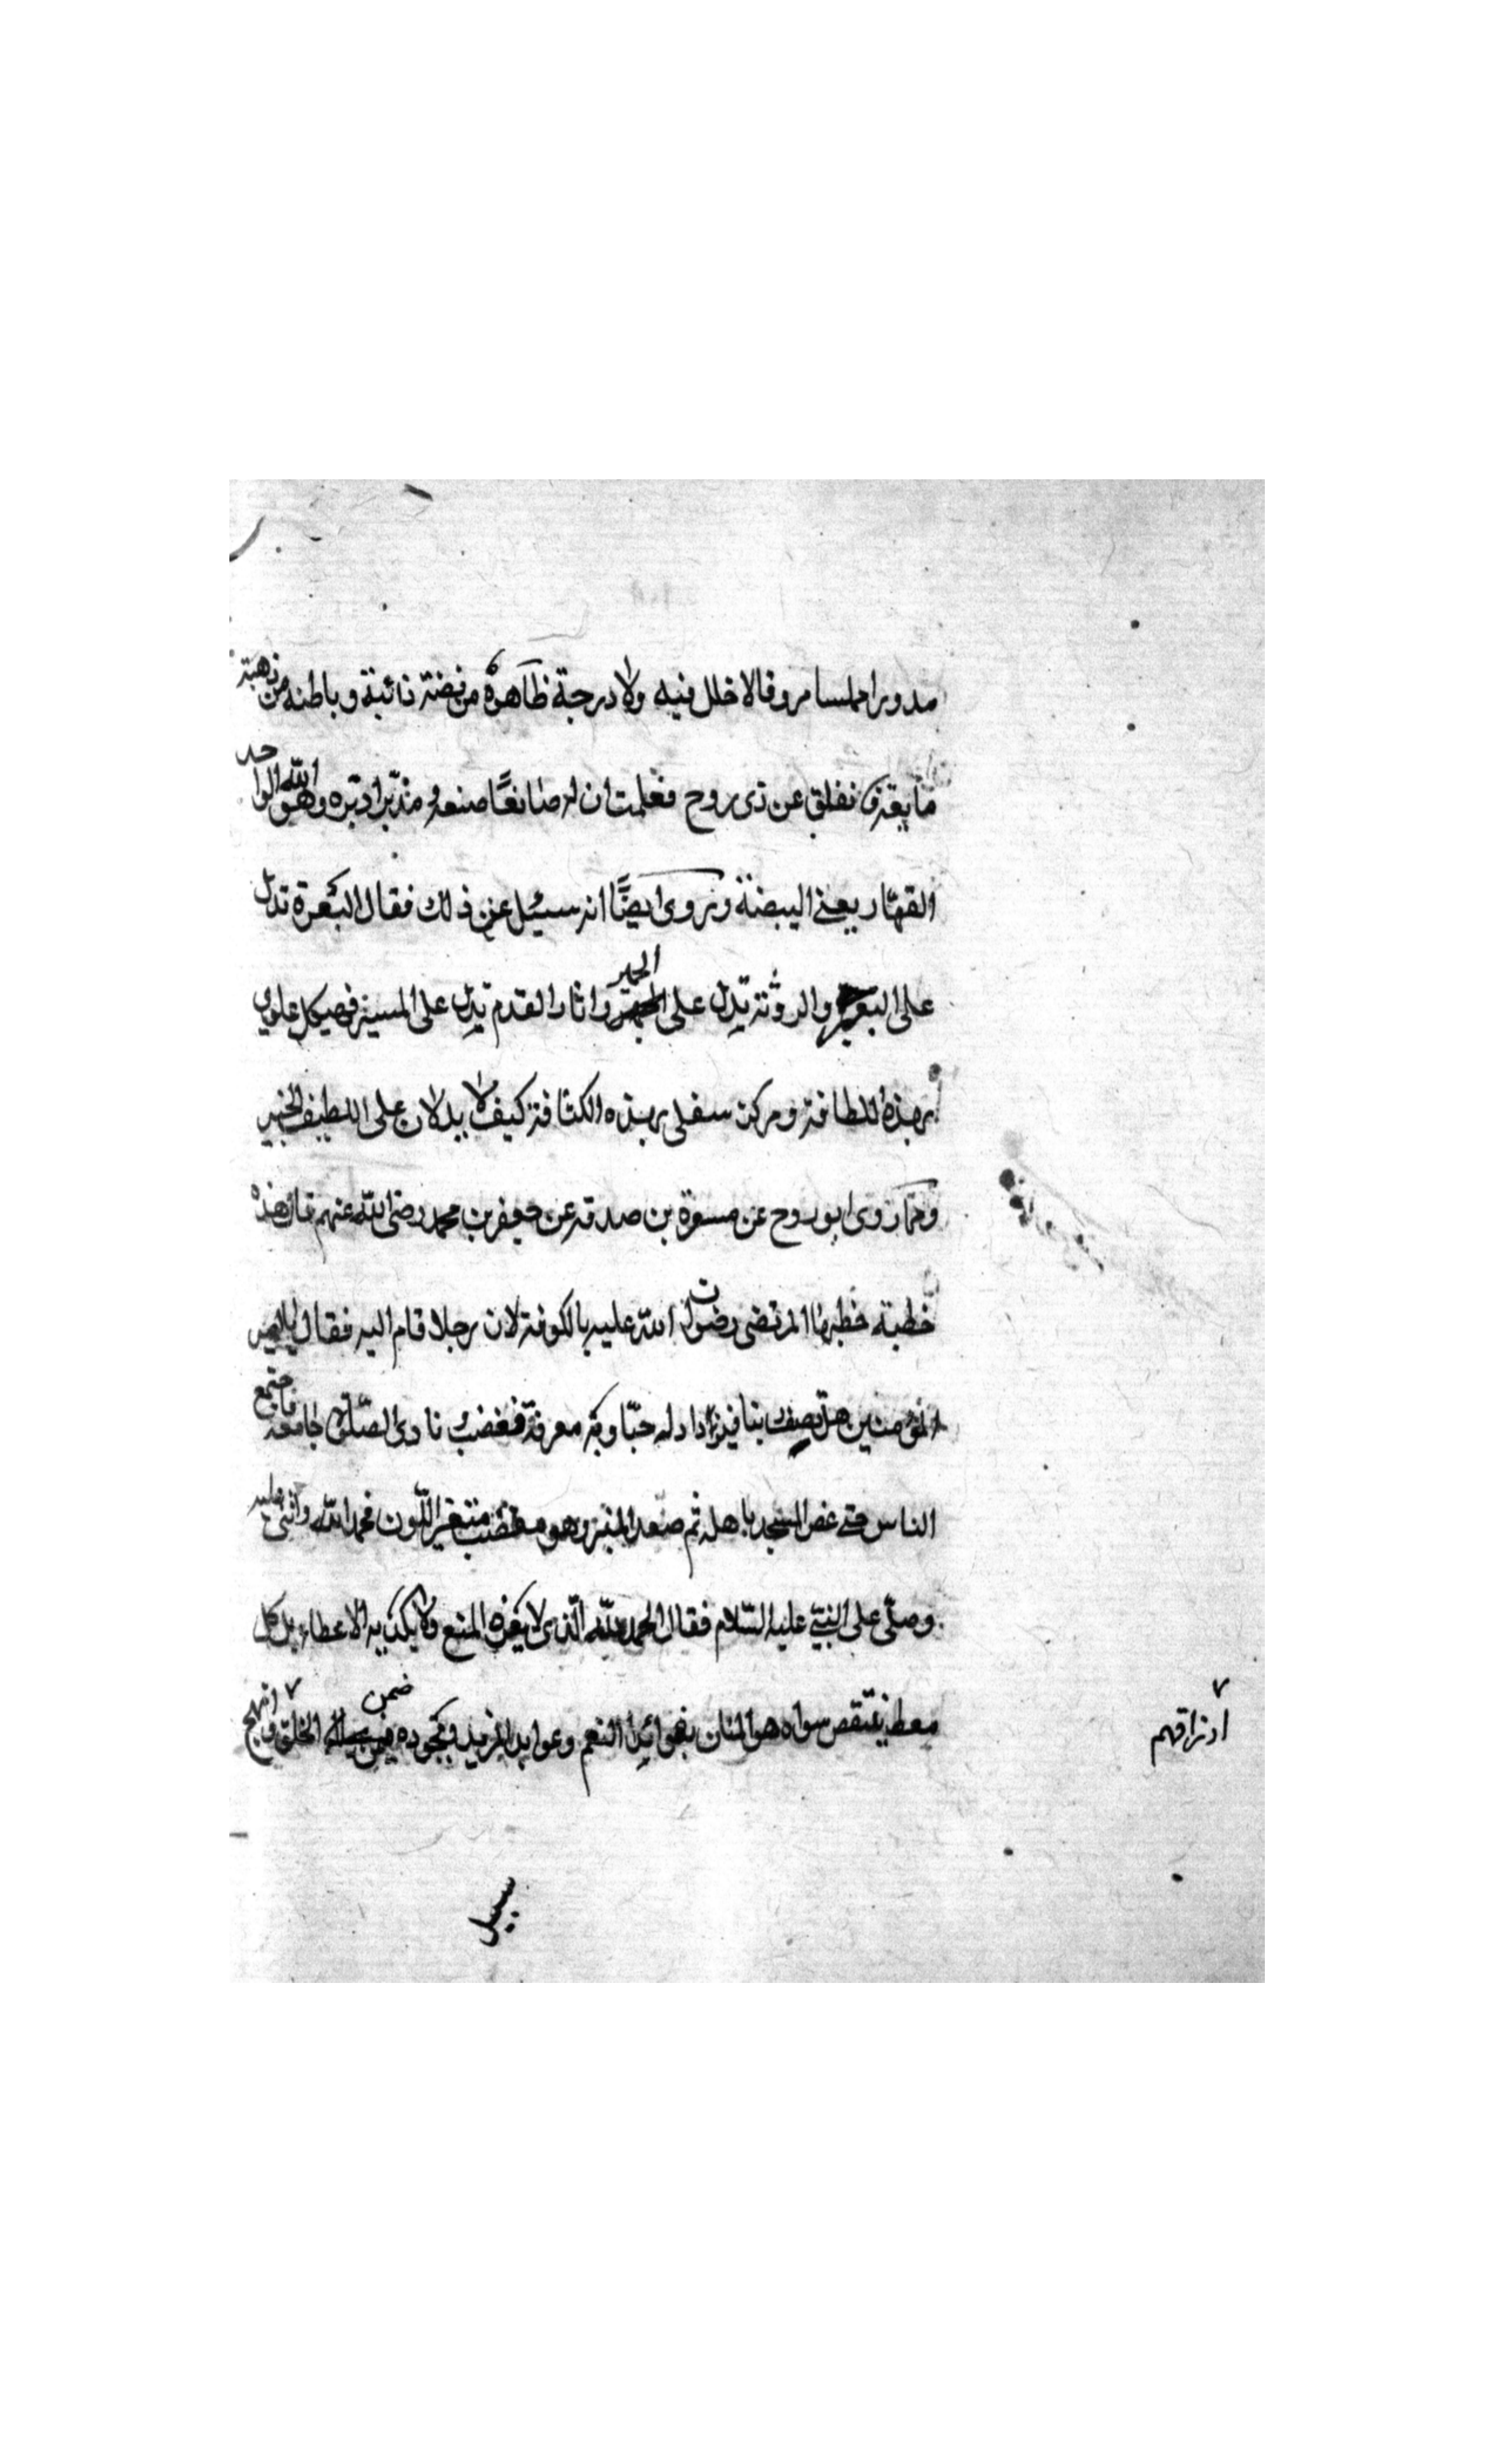 مدورا املسا مروقا لا خلل فيه ولا درجة ظاهره من فضة ذائبة وباطنه من ذهبة
مايعة نفلق عن ذي روح فعلمت ان له صانعًا صنعه و مدبّرا دبّره وهو الله الواحد
القهّار يعني البيضة و نروى ايضًا انه سئل عن ذلك فقال البعرة تدل
على البعير والروثة تدل على الحمير واثار القدم تدل على المسير فهيكل علوي
بهذه اللطافة ومركز سفلى بهذه الكثافة كيف لا يدلان على اللطيف الخبير
ومما روى ابو روح عن مسعدة بن صدقه عن جعفر بن محمد رضى الله عنهم قال هذه
خطبة خطبها المرتضى رضوان الله عليه بالكوفة لان رجلا قام اليه فقال يا امير
المؤمنين هل تصف ربنا فيزداد له حبّا وبه معرفة فغضب و نادى الصّلوة جامعه فاجتمع
الناس حتى غص المسجد باهله ثم صعد المنبر وهو مغضب متغير اللّون فحمد الله واثنى عليه
وصلّى على النبيّ عليه السّلام فقال الحمد لله الّذى لا يفره المنع ولا يكديه الاعطاء بل كل
معط ينتقص سواه هو المنان بفوائد النعم وعوايد المزيد وبجوده ضمن الخلق وانهج
ارزاقهم
سبيل